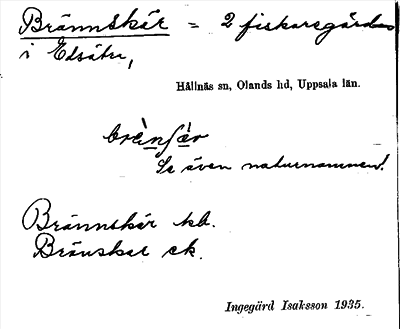 Brännskär = 2 fiskaregårdar
i Edsätra,
Hållnäs sn, Olands hd, Uppsala län.
Se även naturnamnen!
Brännskär kb.
Bränskär ek.
Ingegärd Isaksson 1935.